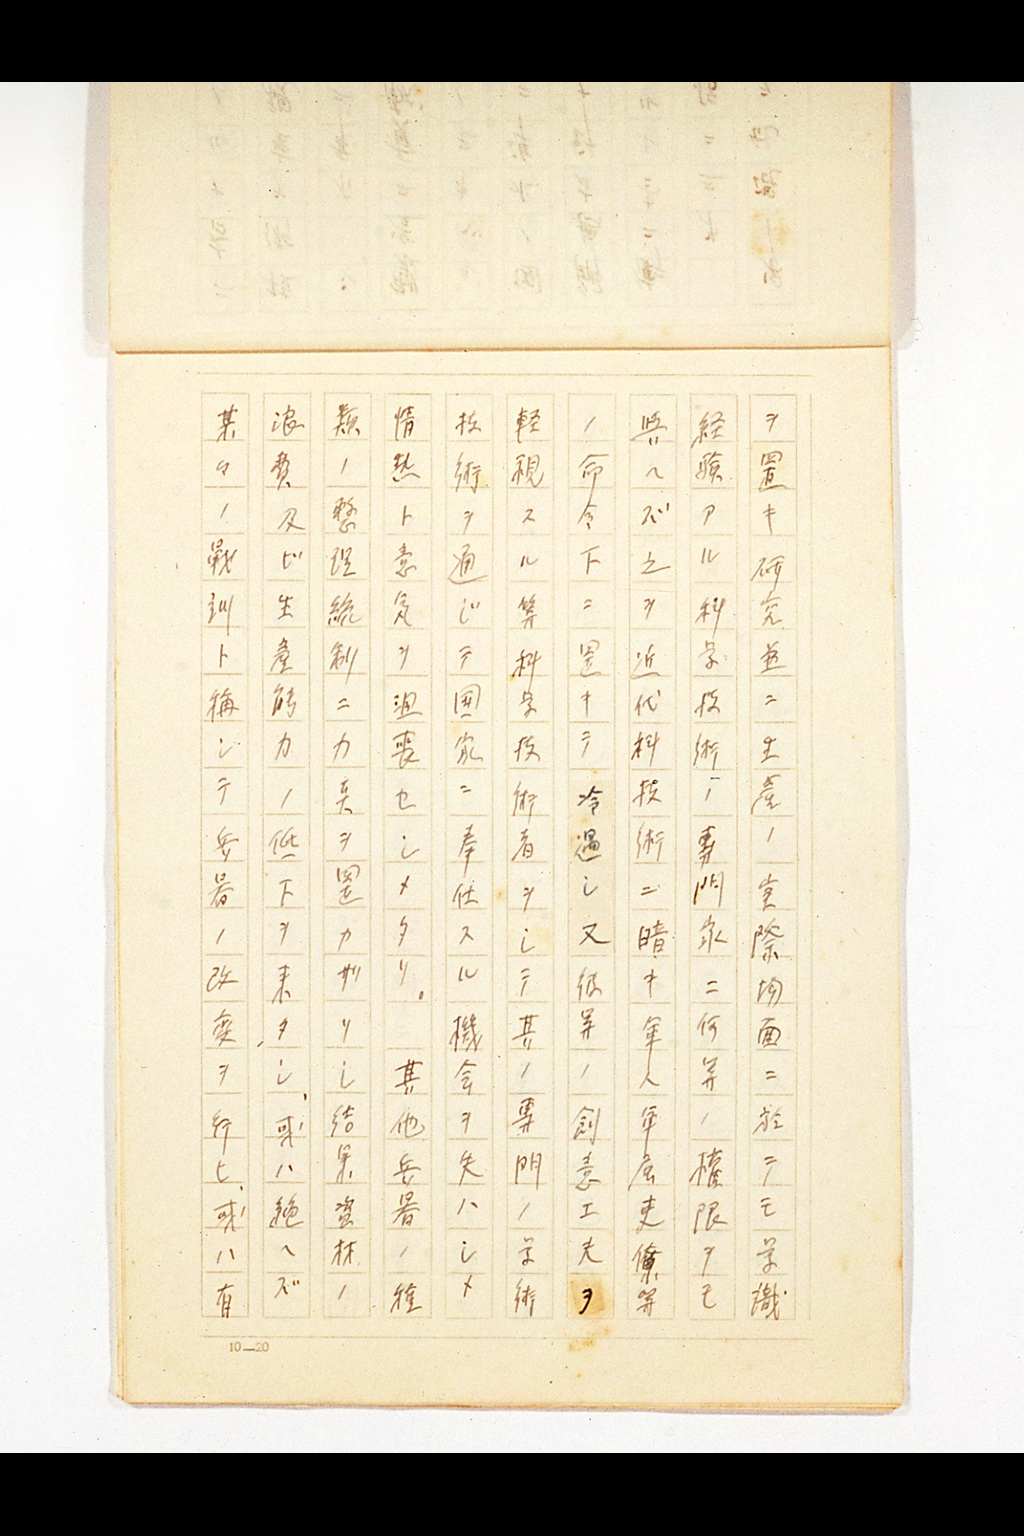 ヲ置キ研究並ニ生産ノ実際場面ニ於テモ学識
経験アル科学技術ノ専門家ニ何等ノ権限ヲモ
与ヘズ之ヲ近代科技術ニ暗キ軍人軍属吏僚等
ノ命令下ニ置キテ冷遇シ又彼等ノ創意工夫ヲ
軽視スル等科学技術者ヲシテ其ノ専門ノ学術
技術ヲ通ジテ国家ニ奉仕スル機会ヲ失ハシメ
情熱ト意気ヲ沮喪セシメタリ。其他兵器ノ種
類ノ整理統制ニ力点ヲ置カザリシ結果資材ノ
浪費及ビ生産能力ノ低下ヲ来タシ、或ハ絶ヘズ
某々ノ戦訓ト称シテ兵器ノ改変ヲ行ヒ、或ハ有
10—20